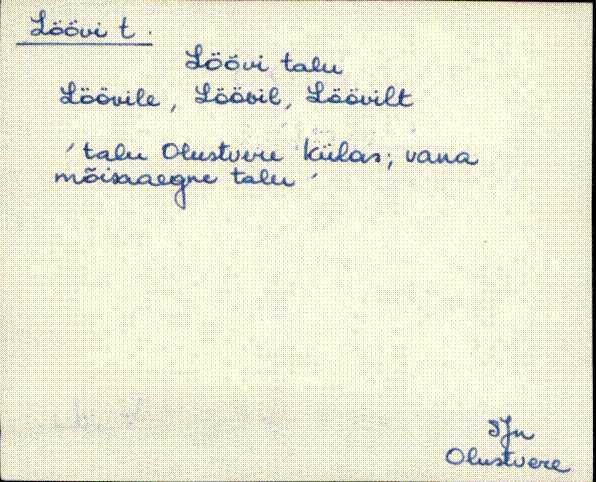 Löövi t.
Löövi talu
Löövile, Löövil, Löövilt
' talu Olustvere külas; vana
mõisaaegne talu '
SJn
Olustvere